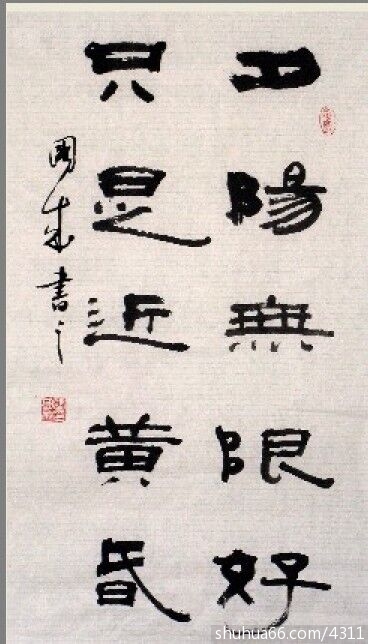 夕陽無限好
只是近黄昏
國成書之
shuhua66.com/4311